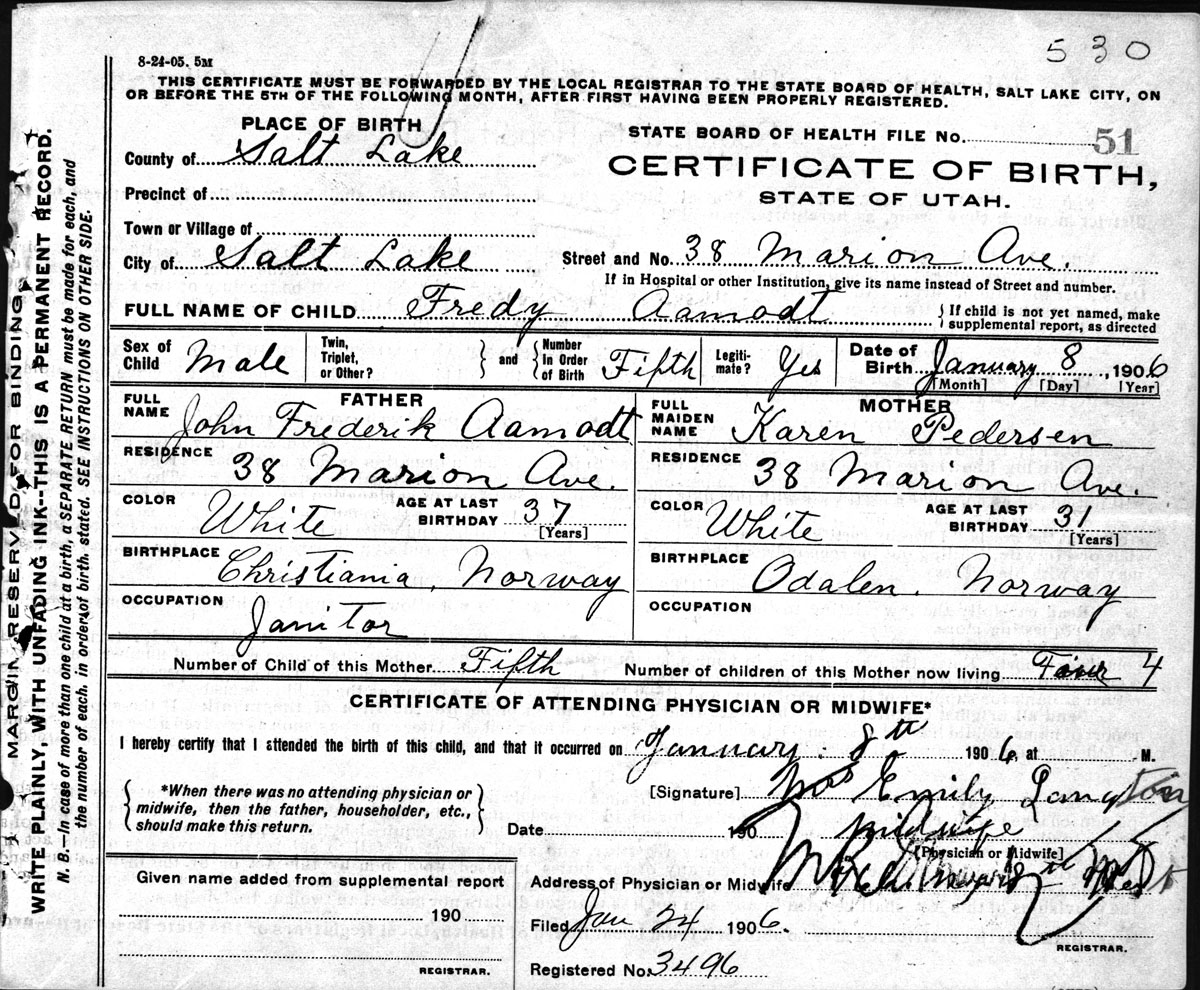 530
8-24-05. 5M
THIS CERTIFICATE MUST BE FORWARDED BY THE LOCAL REGISTRAR TO THE STATE BOARD OF HEALTH, SALT LAKE CITY, ON
OR BEFORE THE 5TH OF THE FOLLOWING MONTH, AFTER FIRST HAVING BEEN PROPERLY REGISTERED.
PLACE OF BIRTH
STATE BOARD OF HEALTH FILE No. 51
County of Salt Lake
CERTIFICATE OF BIRTH,
Precinct of
STATE OF UTAH.
Town or Village of
City of Salt Lake
Street and No. 38 Marion Ave.
If in Hospital or other Institution, give its name instead of Street and number.
FULL NAME OF CHILD Fredy Aamodt
If child is not yet named, make
supplemental report, as directed
Sex of
Child Male
Twin,
Triplet,
or Other?
and
Number
In Order
of Birth Fifth
Legiti-
mate? Yes
Date of
Birth January 8, 1906
[Month] [Day] [Year]
FATHER
FULL
NAME John Frederik Aamodt
RESIDENCE
38 Marion Ave.
COLOR White
AGE AT LAST
BIRTHDAY 37
[Years]
BIRTHPLACE
Christiania, Norway
OCCUPATION
Janitor
MOTHER
FULL
MAIDEN
NAME Karen Pedersen
RESIDENCE
38 Marion Ave.
COLOR White
AGE AT LAST
BIRTHDAY 31
[Years]
BIRTHPLACE
Odalen, Norway
OCCUPATION
Number of Child of this Mother Fifth
Number of children of this Mother now living Four 4
CERTIFICATE OF ATTENDING PHYSICIAN OR MIDWIFE*
I hereby certify that I attended the birth of this child, and that it occurred on January 8th 1906, at M.
*When there was no attending physician or
midwife, then the father, householder, etc.,
should make this return.
[Signature] Mrs Emily Langton
Date 190 Midwife
[Physician or Midwife]
Given name added from supplemental report
190
REGISTRAR.
Address of Physician or Midwife
Filed Jan 24 1906.
REGISTRAR.
Registered No. 3496
MARGIN RESERVED FOR BINDING
WRITE PLAINLY, WITH UNFADING INK--THIS IS A PERMANENT RECORD.
N. B.—In case of more than one child at a birth, a SEPARATE RETURN must be made for each, and
the number of each, in order of birth, stated. SEE INSTRUCTIONS ON OTHER SIDE.